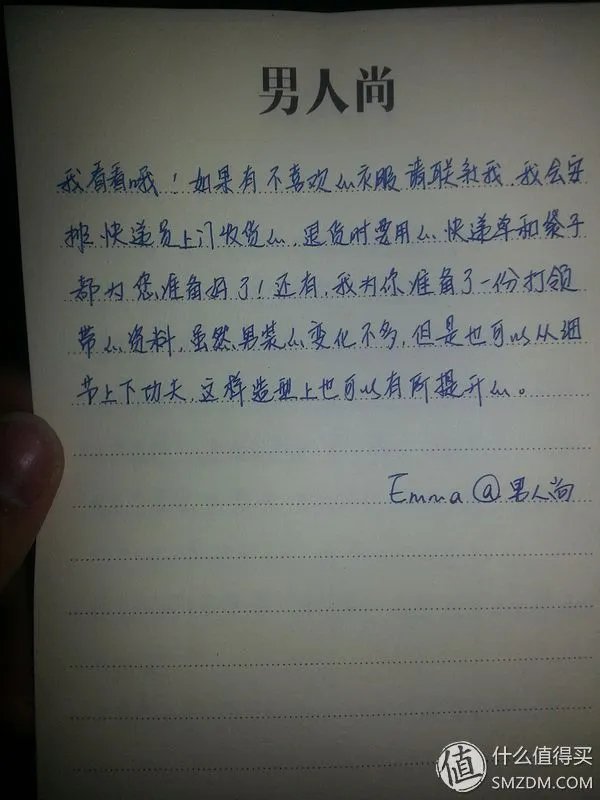 男人尚
我看看哦！如果有不喜欢的衣服请联系我，我会安
排快递员上门收货的，退货时要用的快递单和袋子
都为您准备好了！还有，我为你准备了一份打领
带的资料，虽然男装的变化不多，但是也可以从细
节上下功夫，这样造型上也可以有所提升的。
Emma @男人尚
值 什么值得买
SMZDM.COM